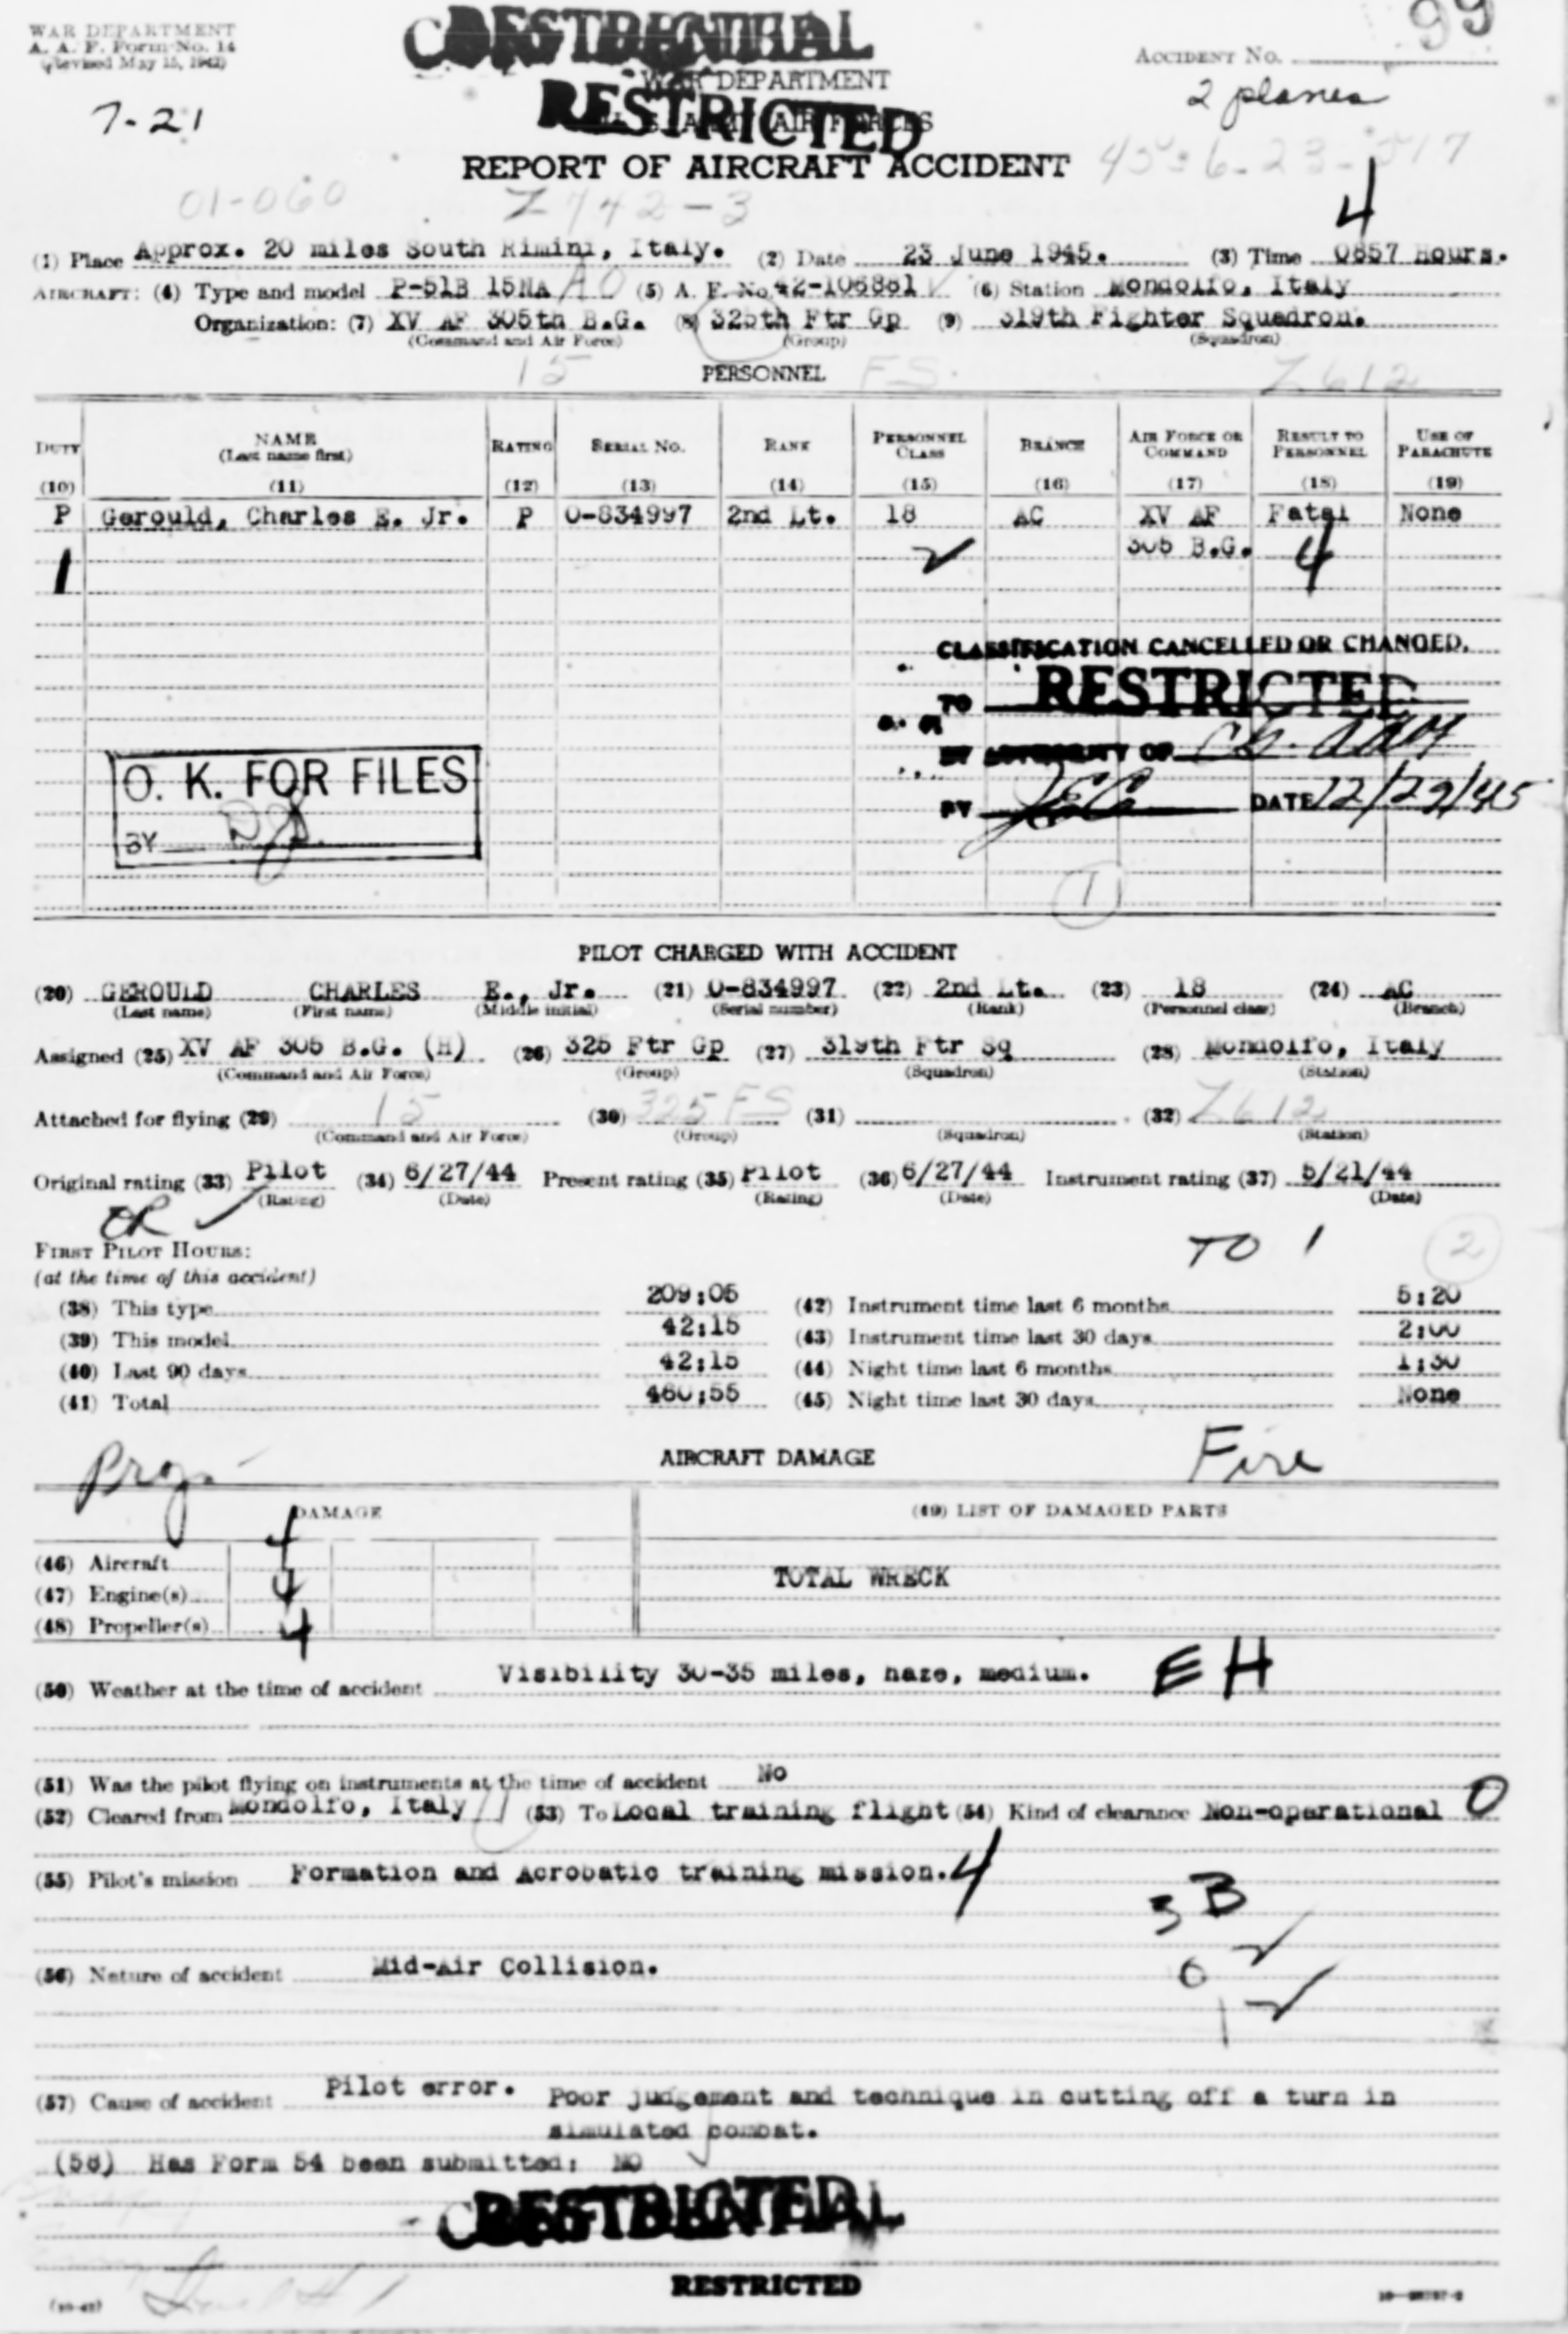 WAR DEPARTMENT
A. A. F. Form No. 14
(Revised May 15, 1942)
ACCIDENT No.
99
WAR DEPARTMENT
RESTRICTED
7-21
2 planes
REPORT OF AIRCRAFT ACCIDENT
01-060
Z742-3
4
(1) Place Approx. 20 miles South Rimini, Italy. (2) Date 23 June 1945. (3) Time 0857 Hours.
AIRCRAFT: (4) Type and model P-51B 15NA (5) A. F. No. 42-106881 (6) Station Mondolfo, Italy
Organization: (7) XV AF 305th B.G. (8) 325th Ftr Gp (9) 319th Fighter Squadron.
(Command and Air Force) (Group) (Squadron)
15 FS Z612
PERSONNEL
DUTY NAME (Last name first) RATING SERIAL No. RANK PERSONNEL CLASS BRANCH AIR FORCE OR COMMAND RESULT TO PERSONNEL USE OF PARACHUTE
(10) (11) (12) (13) (14) (15) (16) (17) (18) (19)
P Gerould, Charles E. Jr. P O-834997 2nd Lt. 18 AC XV AF Fatal None
305 B.G.
1 4
CLASSIFICATION CANCELLED OR CHANGED.
TO RESTRICTED
BY AUTHORITY OF
BY DATE 12/29/45
O. K. FOR FILES
BY
1
PILOT CHARGED WITH ACCIDENT
(20) GEROULD CHARLES E., Jr. (21) O-834997 (22) 2nd Lt. (23) 18 (24) AC
(Last name) (First name) (Middle initial) (Serial number) (Rank) (Personnel class) (Branch)
Assigned (25) XV AF 305 B.G. (H) (26) 325 Ftr Gp (27) 319th Ftr Sq (28) Mondolfo, Italy
(Command and Air Force) (Group) (Squadron) (Station)
Attached for flying (29) 15 (30) 325 FS (31) (32) Z612
(Command and Air Force) (Group) (Squadron) (Station)
Original rating (33) Pilot (34) 6/27/44 Present rating (35) Pilot (36) 6/27/44 Instrument rating (37) 5/21/44
(Rating) (Date) (Rating) (Date) (Date)
TO 1
2
FIRST PILOT HOURS:
(at the time of this accident)
(38) This type 209:05 (42) Instrument time last 6 months 5:20
(39) This model 42:15 (43) Instrument time last 30 days 2:00
(40) Last 90 days 42:15 (44) Night time last 6 months 1:30
(41) Total 460:55 (45) Night time last 30 days None
AIRCRAFT DAMAGE
Fire
DAMAGE (49) LIST OF DAMAGED PARTS
(46) Aircraft 4 TOTAL WRECK
(47) Engine(s) 4
(48) Propeller(s) 4
(50) Weather at the time of accident Visibility 30-35 miles, haze, medium. EH
(51) Was the pilot flying on instruments at the time of accident No
(52) Cleared from Mondolfo, Italy (53) To Local training flight (54) Kind of clearance Non-operational 0
(55) Pilot's mission Formation and Acrobatic training mission. 4
3B
(56) Nature of accident Mid-Air Collision.
(57) Cause of accident Pilot error. Poor judgement and technique in cutting off a turn in
simulated combat.
(58) Has Form 54 been submitted: NO
RESTRICTED
RESTRICTED